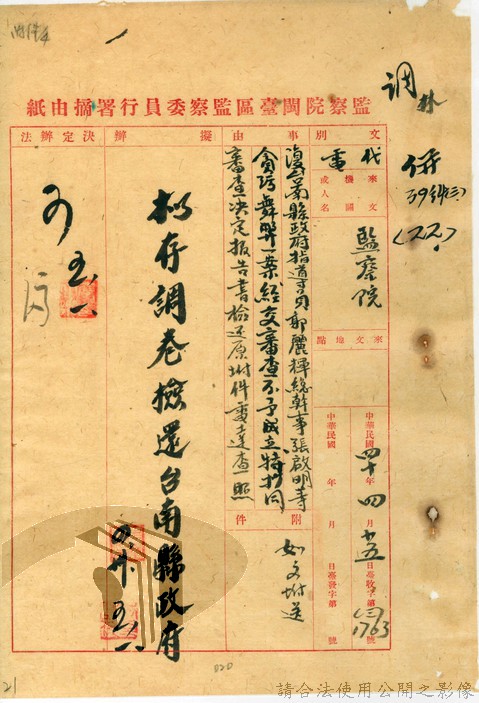 調
併
39
(22)
監察院閩臺區監察委員行署摘由紙
文別
代電
來文機關或人名
監察院
來文地點
中華民國四十年四月十五日臺發字第1763號
中華民國 年 月 日臺發字第 號
事由
復台南縣政府指導員郭麗輝總幹事張啟明等
貪污舞弊一案經交審查不予成立特抄同
審查決定報告書檢還原附件電達查照
附件
如文附送
擬辦
擬存調卷檢還台南縣政府
決定辦法
020
21
請合法使用公開之影像